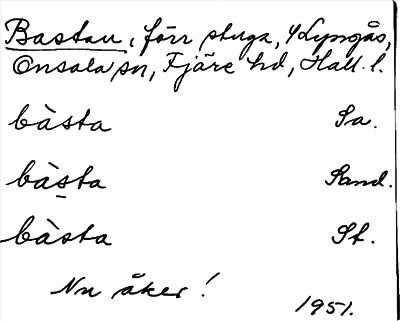 Bastau, förr stuga, y Lyngås,
Onsala sn, Fjäre hd, Hall. l.
bàsta Sa.
bàs̠ta Sand.
bàsta St.
Nu åker!
1951.